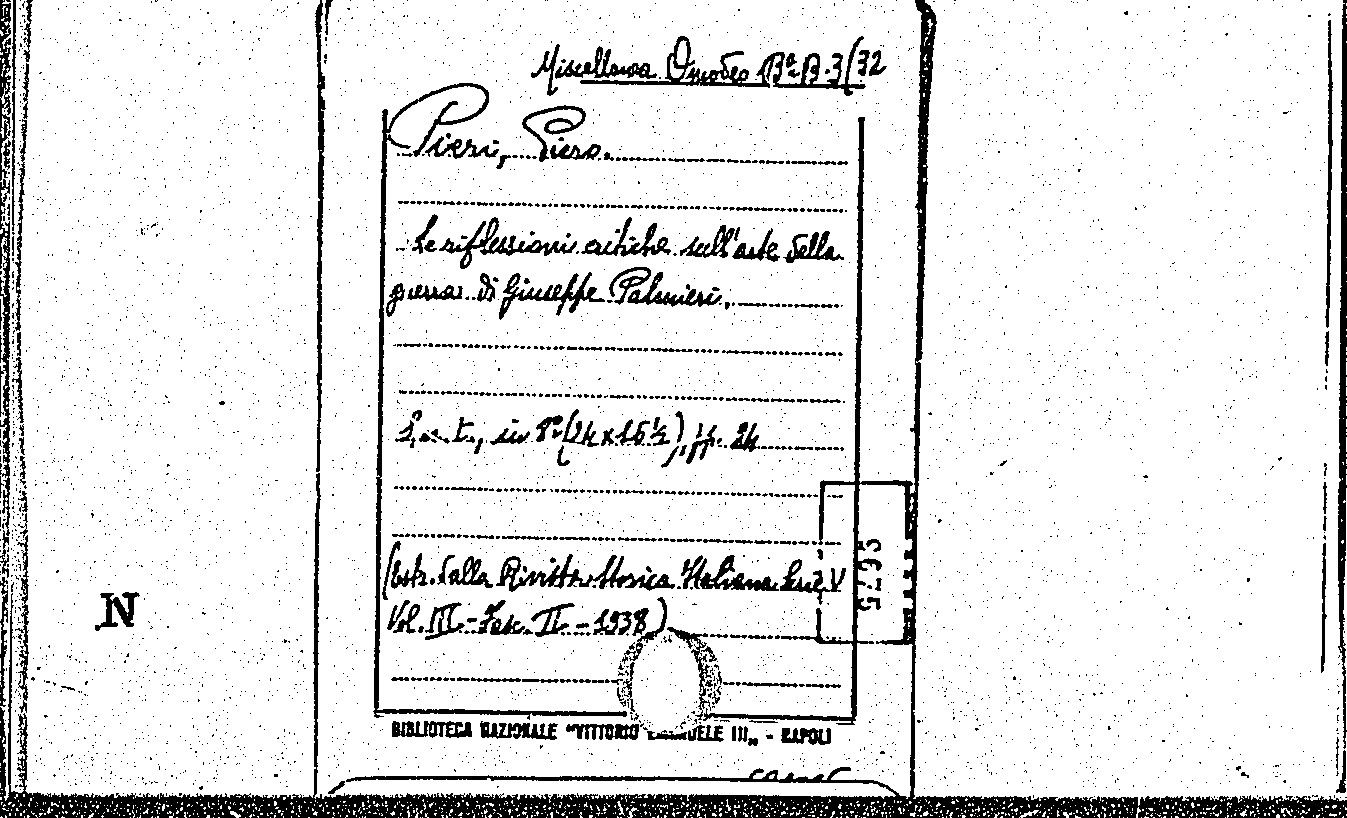 Miscellanea Omodeo Bª B. 3/32
Pieri, Piero.
Le riflessioni critiche sull'arte della
guerra di Giuseppe Palmieri.
S. n. t., in 8º (24 x 16 ½), pp. 24
(Estr. dalla Rivista Storica Italiana Serie V
Vol. III - Fasc. II - 1938)
5675
N
BIBLIOTECA NAZIONALE "VITTORIO EMANUELE III„ - NAPOLI